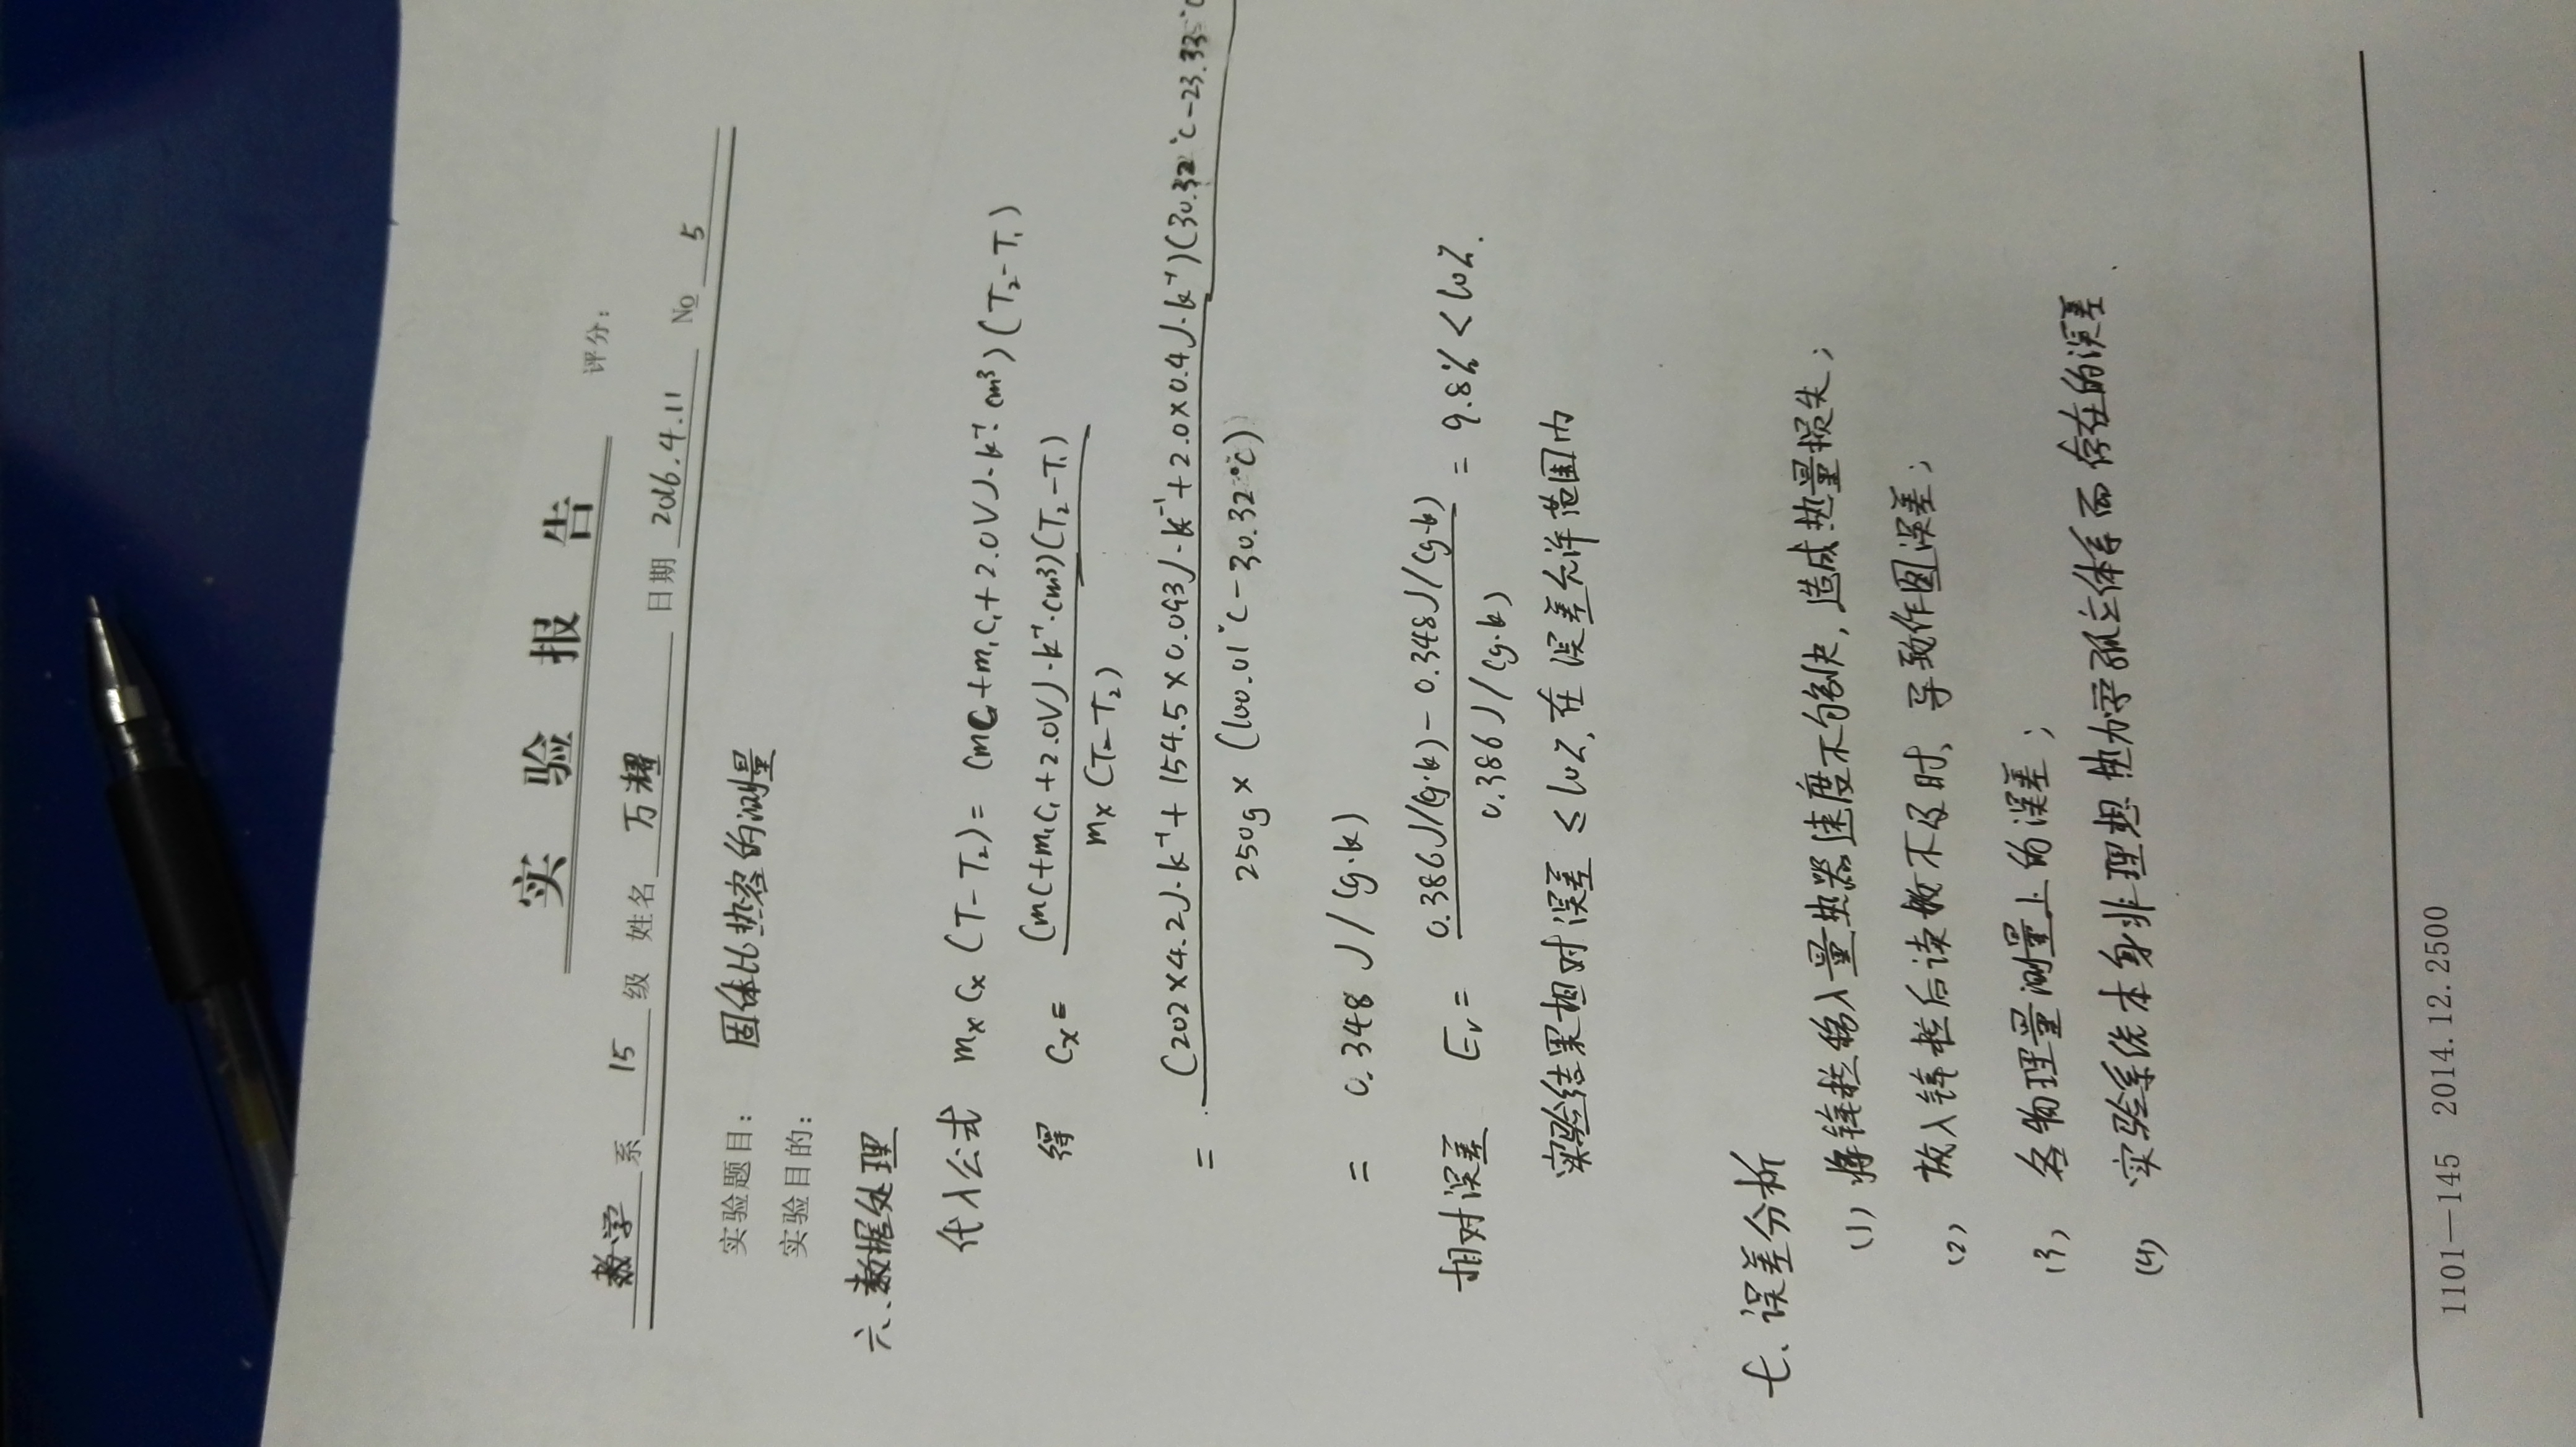 实 验 报 告
评分:
数学 系 15 级 姓名 万耀 日期 2016.4.11 No 5
实验题目: 固体比热容的测量
实验目的:
六、数据处理
代入公式 mₓcₓ(T-T₂)=(mC+m₁C₁+2.0VJ·k⁻¹·cm³)(T₂-T₁)
得 Cₓ= (mC+m₁C₁+2.0VJ·k⁻¹·cm³)(T₂-T₁)
mₓ(T-T₂)
= (202×4.2J·k⁻¹+154.5×0.093J·k⁻¹+2.0×0.4J·k⁻¹)(30.32℃-23.33℃
250g×(100.01℃-30.32℃)
= 0.348 J/(g·k)
相对误差 Eᵣ= 0.386J/(g·k)-0.348J/(g·k) = 9.8% < 10%.
0.386J/(g·k)
实验结果相对误差 ≤10%,在误差允许范围内
七、误差分析
(1) 将锌粒移入量热器速度不够快,造成热量损失;
(2) 放入锌粒后读数不及时、导致作图误差;
(3) 各物理量测量上的误差;
(4) 实验系统本身非理想热力学孤立体系而存在的误差.
1101—145 2014.12.2500